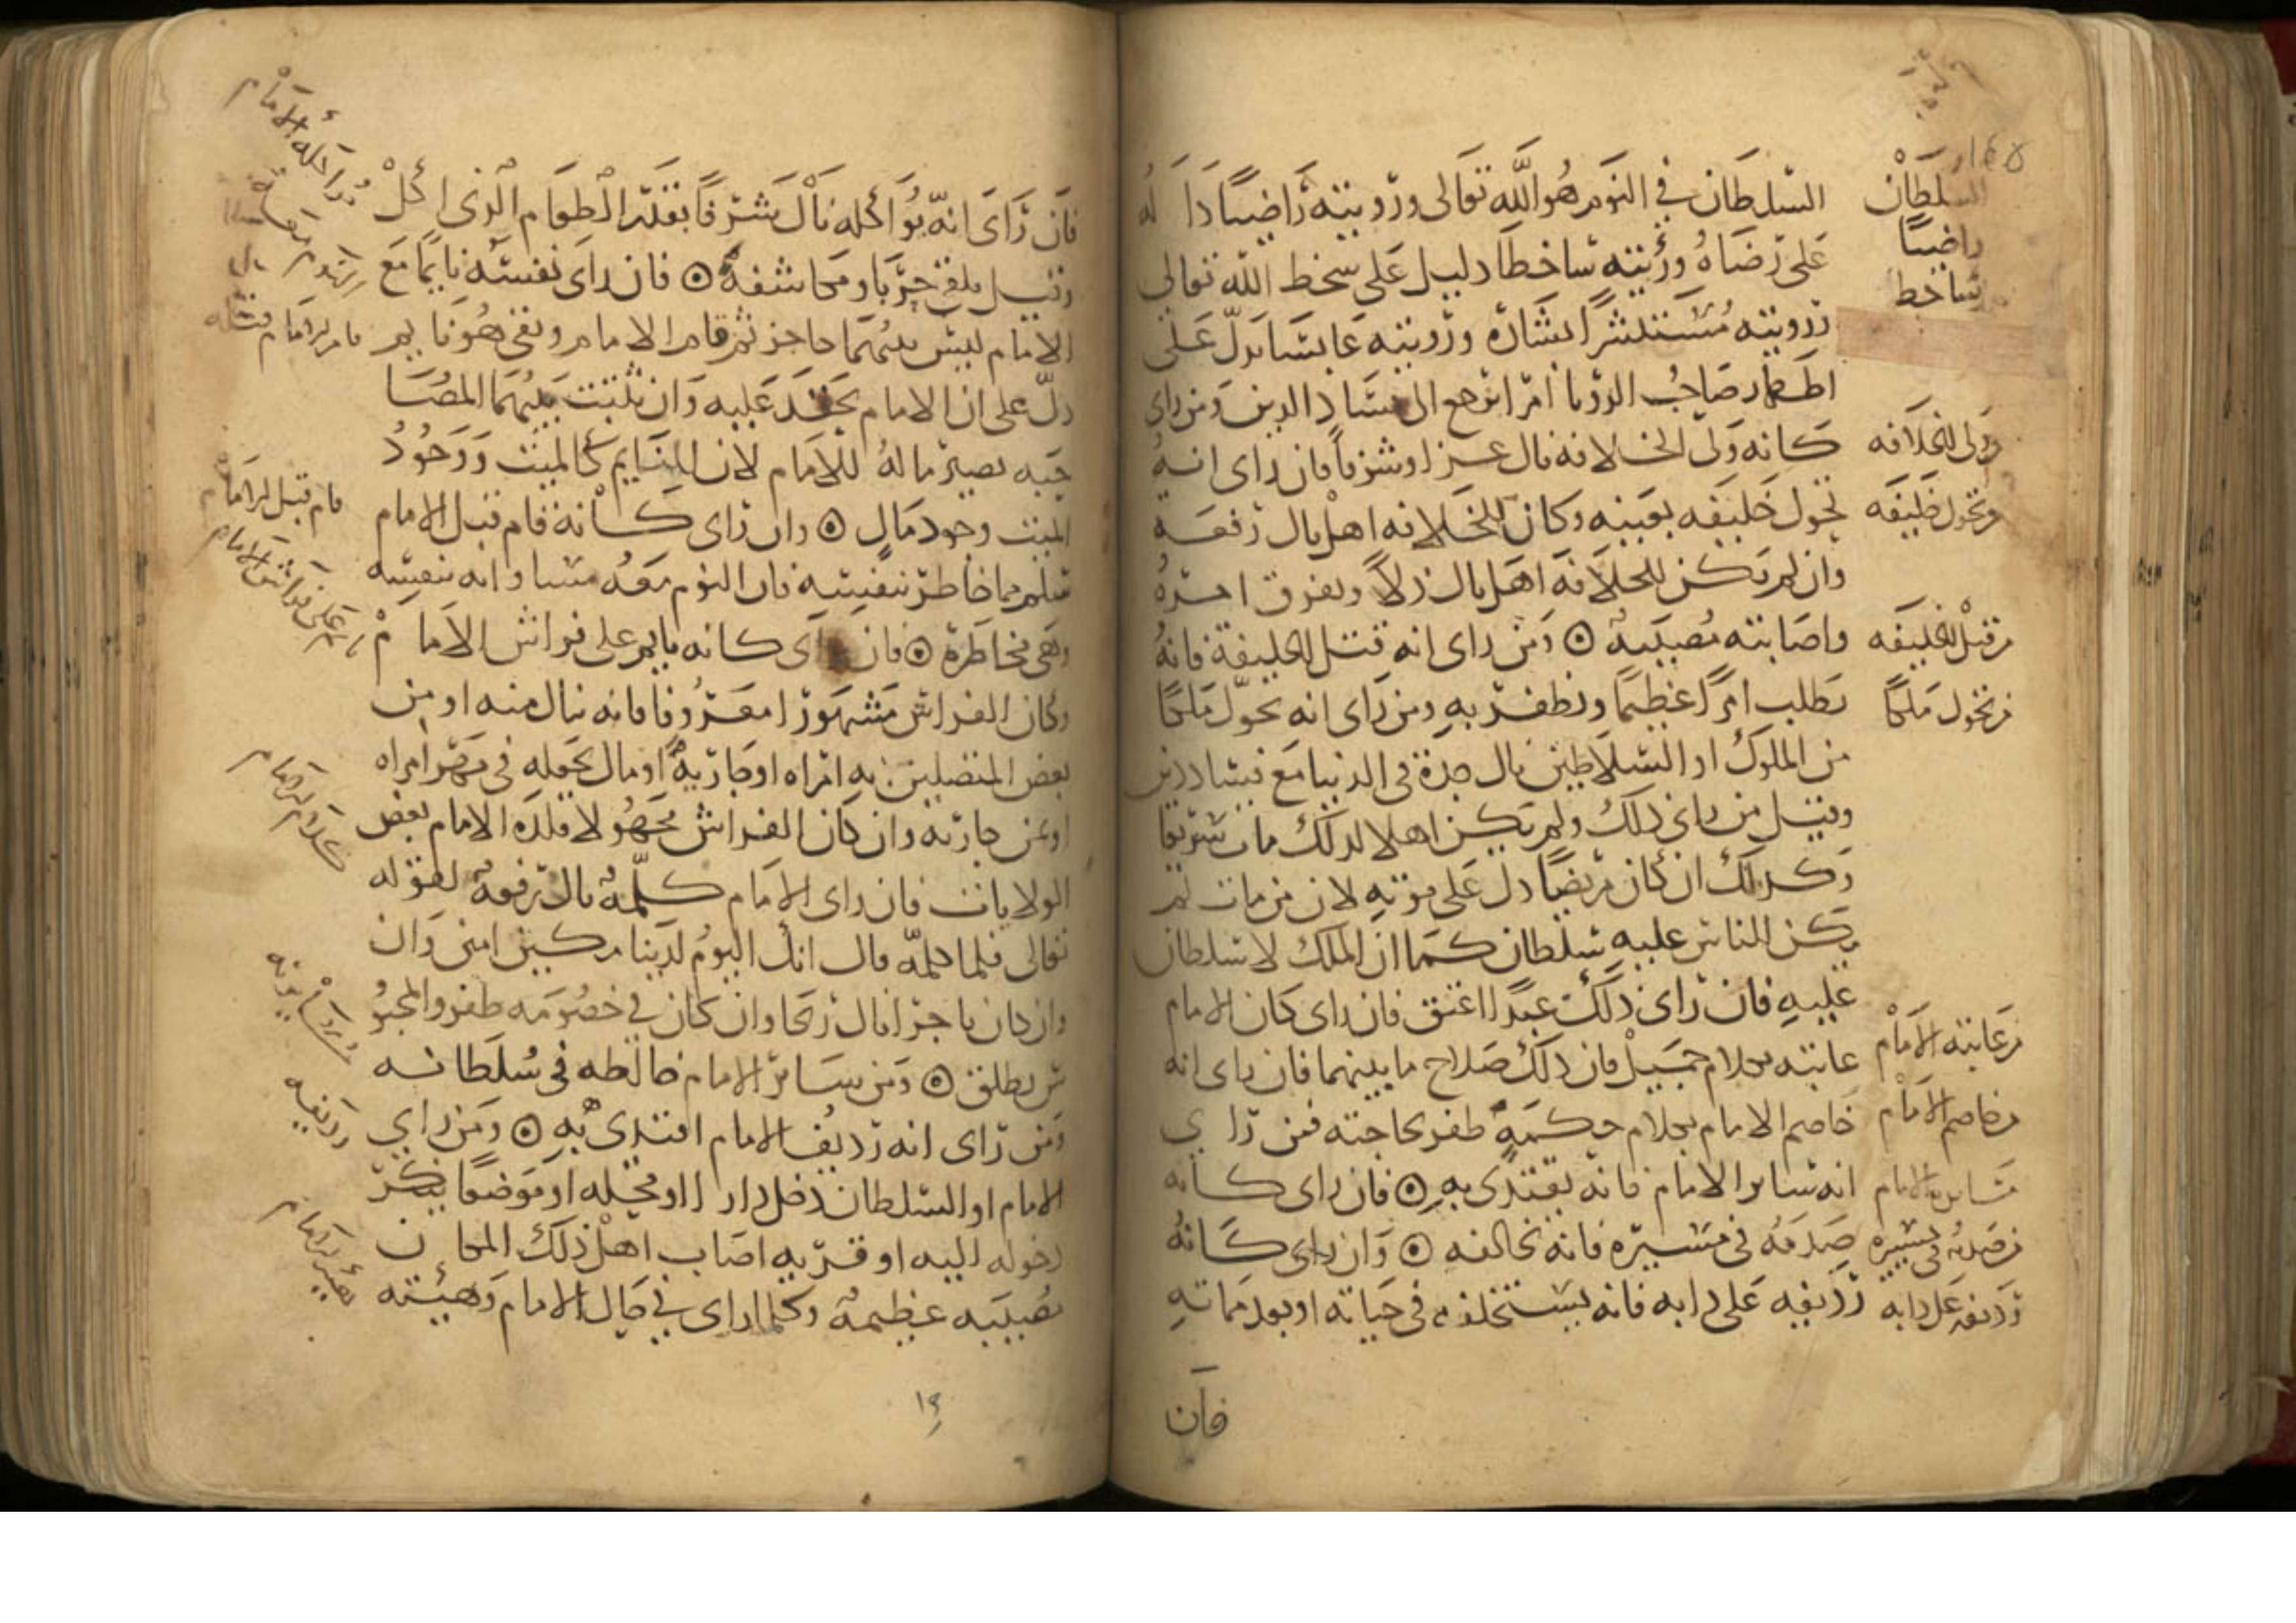 السلطان في النوم هو الله تعالى ورؤيته راضيا دا له
على رضاه ورؤيته ساخطا دليل على سخط الله تعالى
ورؤيته مستبشرا بشارة ورؤيته عابسا يدل على
اظهار صاحب الرؤيا امرا يرجع الى فساد الدين ومن راى
كانه ولى الخلافه نال عزا وشرفا فان راى انه
تحول خليفه بعينه وكان للخلافه اهل نال رفعه
وان لم يكن للخلافه اهل نال ذلا وتفرق امره
واصابته مصيبه ۞ ومن راى انه قتل الخليفة فانه
يطلب امرا عظيما ويظفر به ومن راى انه تحول ملكا
من الملوك او السلاطين نال جدة في الدنيا مع فساد دين
وقيل من راى ذلك ولم يكن اهلا لذلك مات سريعا
وكذلك ان كان مريضا دل على موته لان من مات لم
يكن للناس عليه سلطان كما ان الملك لا سلطان
عليه فان راى ذلك عبدا اعتق فان راى كان الامام
عاتبه بكلام جميل فان ذلك صلاح ما بينهما فان راى انه
خاصم الامام بكلام حكمة ظفر بحاجته فمن راى
انه ساير الامام فانه يقتدى به ۞ فان راى كانه
صدمه في مسيره فانه يخالفه ۞ وان راى كانه
رديفه على دابه فانه يستخلفه في حياته او بعد مماته
فان
السلطان
راضيا
ساخط
ولى الخلافه
وتحول خليفه
من قتل الخليفه
من تحول ملكا
من عاتبه الامام
من خاصم الامام
ساير الامام
من صدمه في مسيره
رديفه على دابه
فان راى انه يؤاكله نال شرفا بقدر الطعام الذى اكل
وقيل يلقى حربا ومكاشفة ۞ فان راى نفسه نايما مع
الامام ليس بينهما حاجز ثم قام الامام وبقى هو نايم
دل على ان الامام يحقد عليه وان ثبتت بينهما المصا
حبه يصير ماله للامام لان النايم كالميت ووجود
الميت وجود مال ۞ وان راى كانه قام قبل الامام
سلم مما خاطر بنفسه فان النوم معه مساواته بنفسه
وهى مخاطرة ۞ فان راى كانه نايم على فراش الامام
وكان الفراش مشهورا معروفا فانه ينال منه او من
بعض المتصلين به امراه او جارية او مال يجعله في مهر امراه
او ثمن جاريه وان كان الفراش مجهولا قلده الامام بعض
الولايات فان راى الامام كلمة نال رفعة لقوله
تعالى فلما كلمه قال انك اليوم لدينا مكين امين وان
وان كان تاجرا نال ربحا وان كان في خصومه ظفر والمحبو
س يطلق ۞ ومن ساير الامام خالطه في سلطانه
ومن راى انه رديف الامام اقتدى به ۞ ومن راى
الامام او السلطان دخل دارا او محله او موضعا ينكر
دخوله اليه او قريه اصاب اهل ذلك المكان
مصيبه عظيمة وكلما راى في حال الامام وهيئته
قام قبل الامام
على فراش الامام
كلام الامام
رديفه